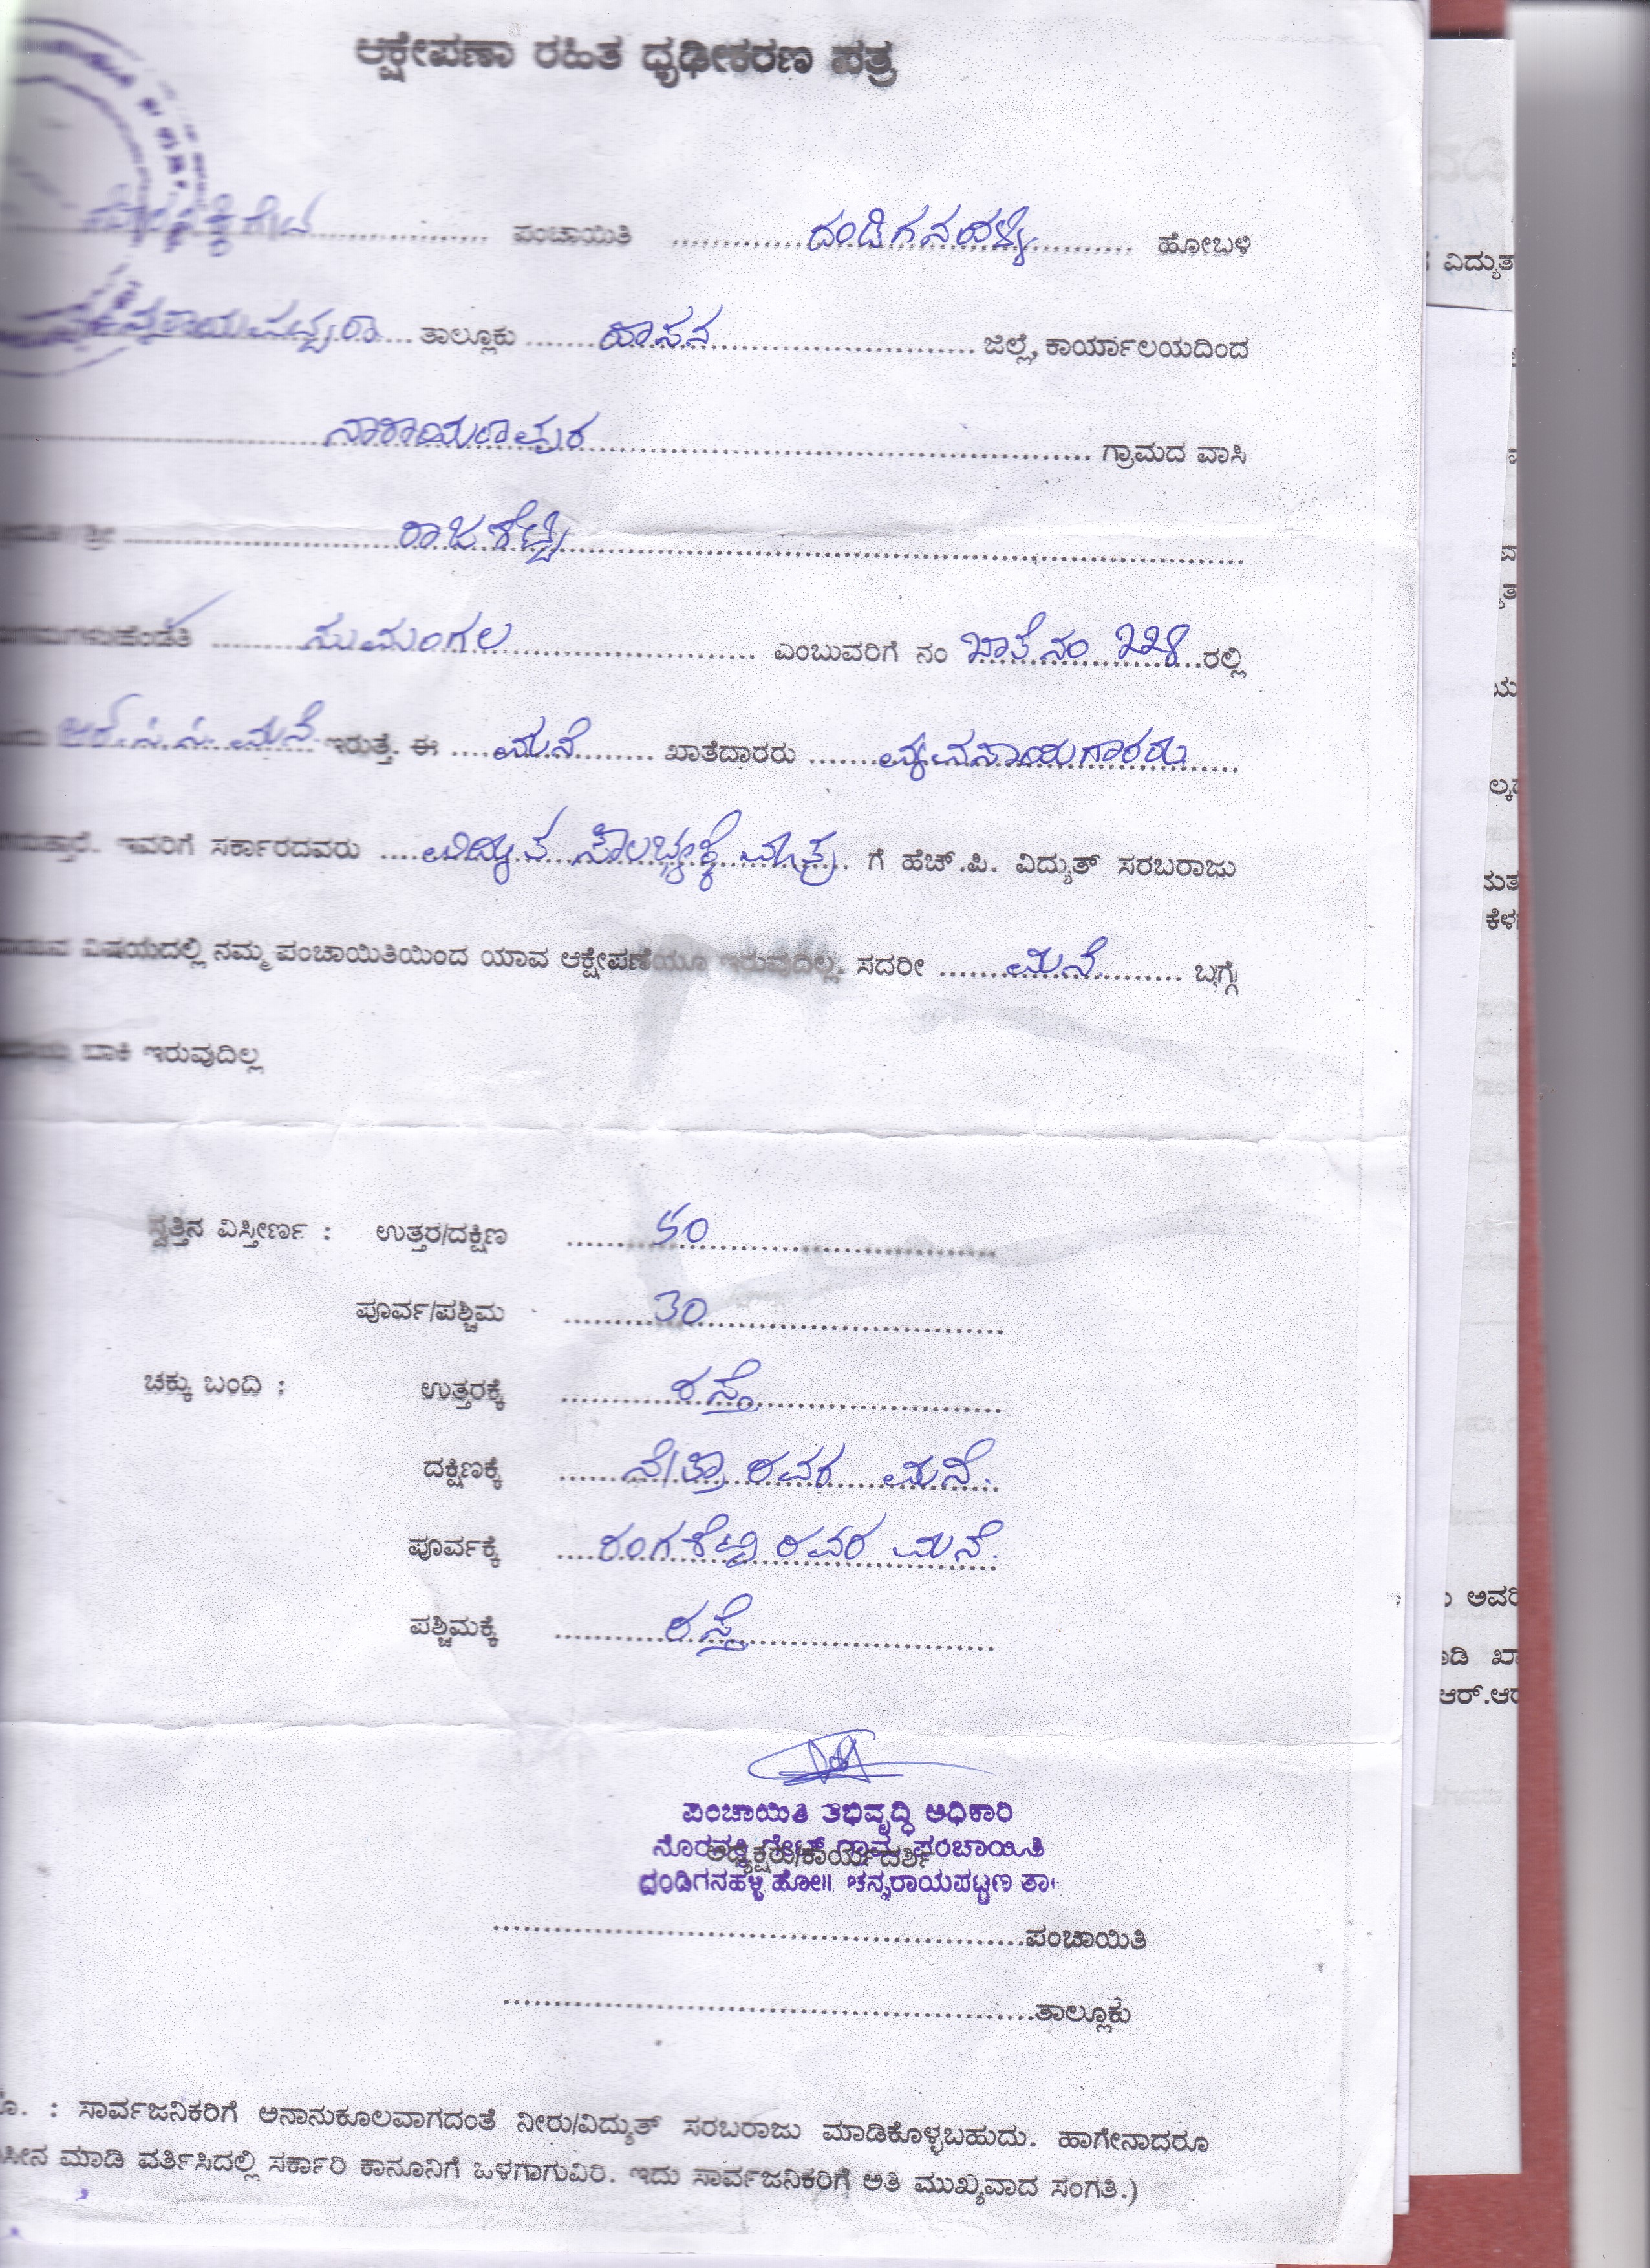 ಆಕ್ಷೇಪಣಾ ರಹಿತ ಧೃಢೀಕರಣ ಪತ್ರ
ಪಂಚಾಯಿತಿ ದಂಡಿಗನಹಳ್ಳಿ ಹೋಬಳಿ
ತಾಲ್ಲೂಕು ಹಾಸನ ಜಿಲ್ಲೆ, ಕಾರ್ಯಾಲಯದಿಂದ
ನಾರಾಯಣಪುರ ಗ್ರಾಮದ ವಾಸಿ
ಶ್ರೀ ರಾಜಶೆಟ್ಟಿ
ಸುಮಂಗಲ ಎಂಬುವರಿಗೆ ನಂ ಖಾತೆ ನಂ 228 ರಲ್ಲಿ
ಆರ್.ಸಿ.ಸಿ. ಮನೆ ಇರುತ್ತೆ. ಈ ಮನೆ ಖಾತೆದಾರರು
ಇವರಿಗೆ ಸರ್ಕಾರದವರು ವಿದ್ಯುತ್ ಸೌಲಭ್ಯಕ್ಕೆ ಮಾತ್ರ ಗೆ ಹೆಚ್.ಪಿ. ವಿದ್ಯುತ್ ಸರಬರಾಜು
ವಿಷಯದಲ್ಲಿ ನಮ್ಮ ಪಂಚಾಯಿತಿಯಿಂದ ಯಾವ ಆಕ್ಷೇಪಣೆಯೂ ಇರುವುದಿಲ್ಲ. ಸದರೀ ಮನೆ ಬಗ್ಗೆ
ಬಾಕಿ ಇರುವುದಿಲ್ಲ
ಸ್ವತ್ತಿನ ವಿಸ್ತೀರ್ಣ : ಉತ್ತರ/ದಕ್ಷಿಣ ೪೦
ಪೂರ್ವ/ಪಶ್ಚಿಮ 30
ಚಕ್ಕು ಬಂದಿ : ಉತ್ತರಕ್ಕೆ ರಸ್ತೆ
ದಕ್ಷಿಣಕ್ಕೆ ನೇತ್ರಾ ರವರ ಮನೆ.
ಪೂರ್ವಕ್ಕೆ ರಂಗಶೆಟ್ಟಿ ರವರ ಮನೆ.
ಪಶ್ಚಿಮಕ್ಕೆ ರಸ್ತೆ
ಪಂಚಾಯಿತಿ ಅಭಿವೃದ್ಧಿ ಅಧಿಕಾರಿ
ಗ್ರಾಮ ಪಂಚಾಯಿತಿ
ಅಧ್ಯಕ್ಷರು/ಕಾರ್ಯದರ್ಶಿ
ದಂಡಿಗನಹಳ್ಳಿ ಹೋ|| ಚನ್ನರಾಯಪಟ್ಟಣ ತಾ
ಪಂಚಾಯಿತಿ
ತಾಲ್ಲೂಕು
: ಸಾರ್ವಜನಿಕರಿಗೆ ಅನಾನುಕೂಲವಾಗದಂತೆ ನೀರು/ವಿದ್ಯುತ್ ಸರಬರಾಜು ಮಾಡಿಕೊಳ್ಳಬಹುದು. ಹಾಗೇನಾದರೂ
ಮಾಡಿ ವರ್ತಿಸಿದಲ್ಲಿ ಸರ್ಕಾರಿ ಕಾನೂನಿಗೆ ಒಳಗಾಗುವಿರಿ. ಇದು ಸಾರ್ವಜನಿಕರಿಗೆ ಅತಿ ಮುಖ್ಯವಾದ ಸಂಗತಿ.)